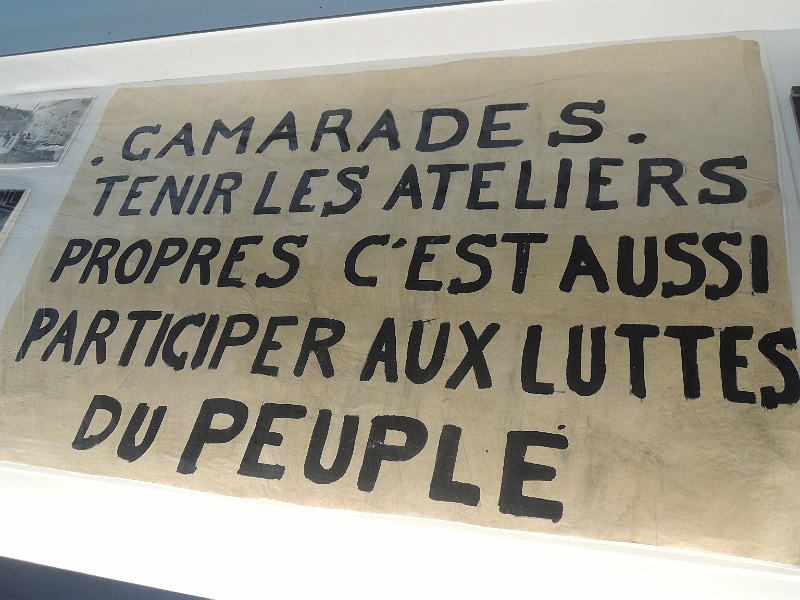 . CAMARADES.
TENIR LES ATELIERS
PROPRES C'EST AUSSI
PARTICIPER AUX LUTTES
DU PEUPLE